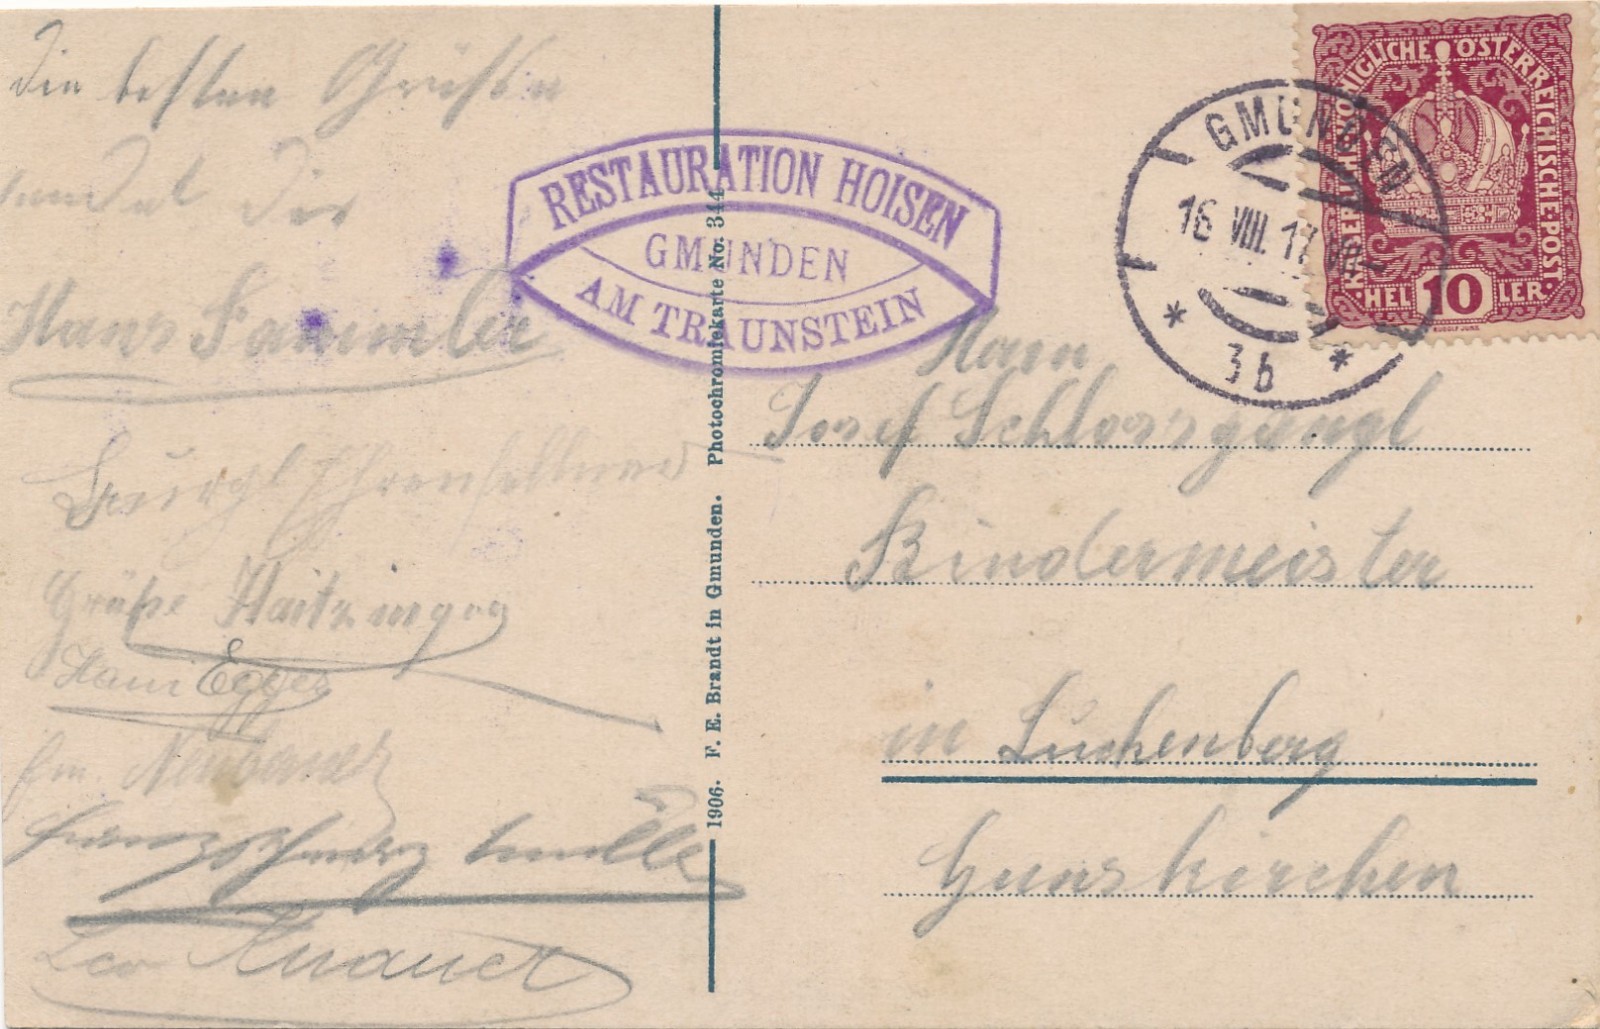 Die besten Grüße
sendet Dir
Hans Sammler
Grüße Haitzinger
Egger
Neubauer
Leo Knauer
RESTAURATION HOISEN
GMUNDEN
AM TRAUNSTEIN
1906. F. E. Brandt in Gmunden. Photochromiekarte No. 344
KAISERLICHE KÖNIGLICHE ÖSTERREICHISCHE POST
HELLER 10
RUDOLF JUNK
GMUNDEN
16 VIII. 17
* 3b *
Herrn
Josef Schlossgangl
Bindermeister
in Luchenberg
Gunskirchen